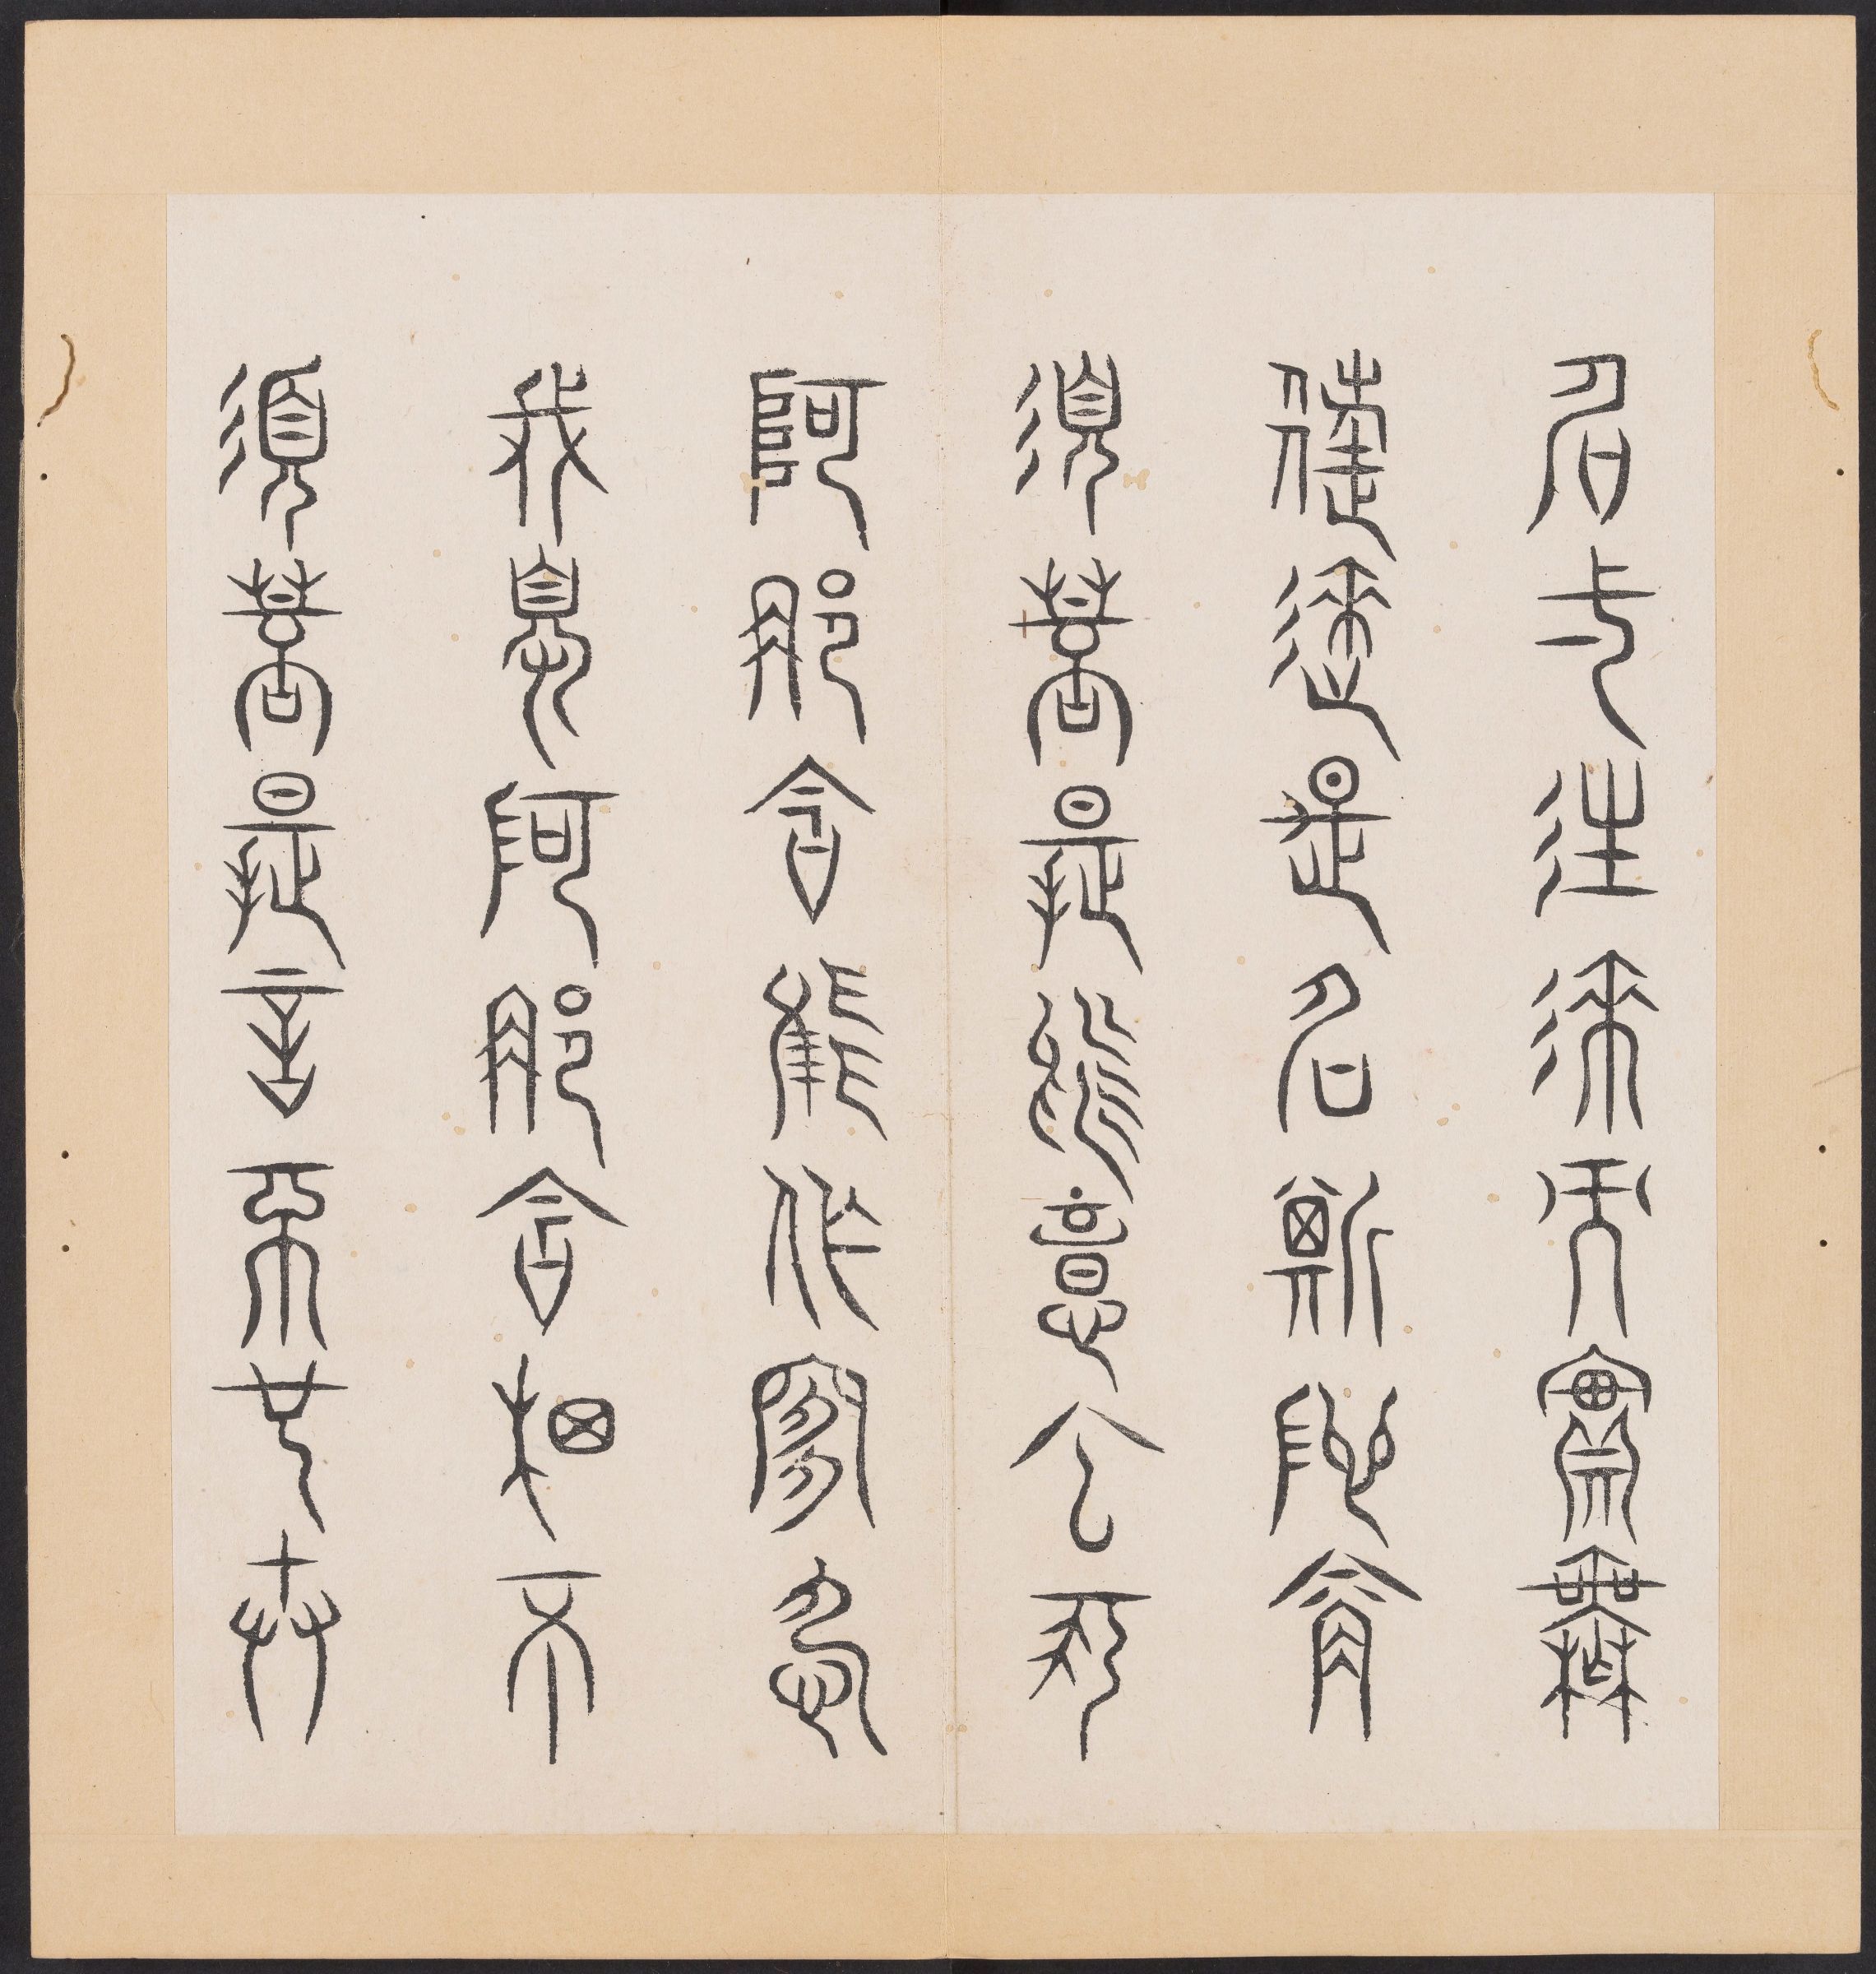 名一往來而實無
往來是名斯陀含
須菩提於意云何
阿那含能作是念
我得阿那含果不
須菩提言不也世